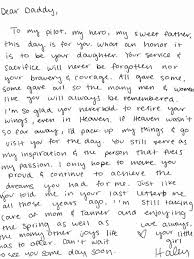 Dear Daddy,
To my pilot, my hero, my sweet father,
this day is for you. What an honor it
is to be your daughter. Your service &
sacrifice will never be forgotten nor
your bravery & courage. All gave some,
some gave all so the many men & women
like you will always be remembered.
I'm so glad you never had to retire your
wings, even in Heaven. If Heaven wasn't
so far away, I'd pack up my things & go
visit you for the day. You still serve as
my inspiration & the person that fuels
my passion. I only hope to make you
proud & continue to achieve the
dreams you had for me. Just like
you told me in your last letter to me
all those years ago, "I'm still taking
care of mom & Tanner and enjoying
the Spring as well as
the many other joys life
has to offer. Can't wait
to see you some day soon
your little
girl